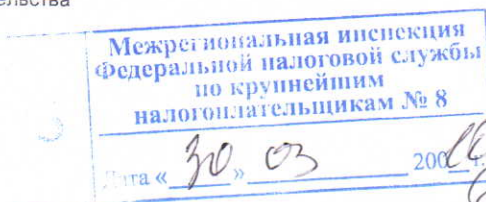 ельства
Межрегиональная инспекция
Федеральной налоговой службы
по крупнейшим
налогоплательщикам № 8
Дата « 30 » 03 200 г.